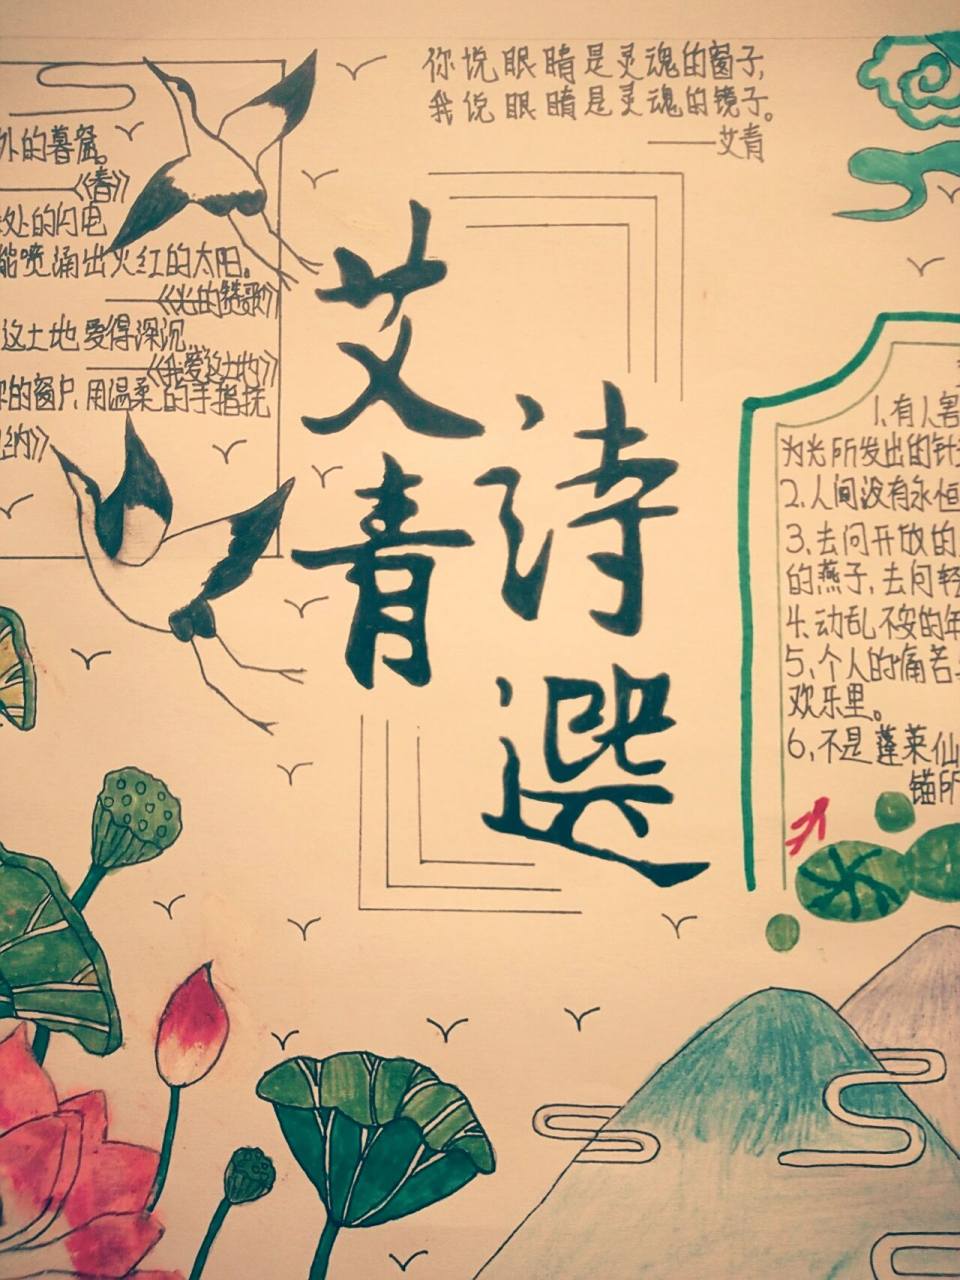 你说眼睛是灵魂的窗子,
我说眼睛是灵魂的镜子。
——艾青
外的暮窟。
——《春》
处的闪电
能喷涌出火红的太阳。
——《光的赞歌》
这土地爱得深沉…
——《我爱这土地》
的窗户,用温柔的手指抚
纳》
艾青
诗選
1、有人害
为光所发出的针
2、人间没有永恒
3、去问开放的
的燕子,去问轻
4、动乱不安的年
5、个人的痛苦
欢乐里。
6、不是蓬莱仙
锚所